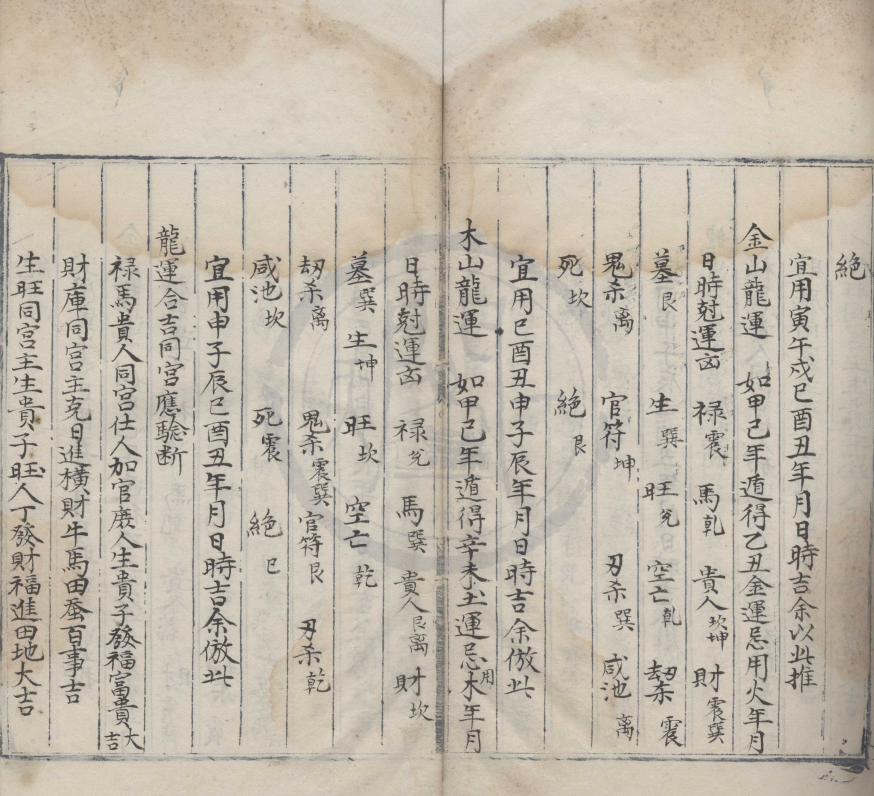 絕
宜用寅午戍巳酉丑年月日時吉余以此推
金山龍運 如甲己年遁得乙丑金運忌用火年月
日時尅運凶 祿震 馬乾 貴人坎坤 財震巽
墓艮 生巽 旺兌 空亡乾 刼杀震
鬼杀离 官符坤 刃杀巽 咸池离
死坎 絕艮
宜用巳酉丑申子辰年月日時吉余倣此
木山龍運 如甲己年遁得辛未土運忌用木年月
日時尅運凶 祿兌 馬巽 貴人艮离 財坎
墓巽 生坤 旺坎 空亡乾
刼杀离 鬼杀震巽 官符艮 刃杀乾
咸池坎 死震 絕巳
宜用申子辰巳酉丑年月日時吉余倣此
龍運合吉同宮應驗断
祿馬貴人同宮仕人加官庶人生貴子發福富貴大吉
財庫同宮主克日進橫財牛馬田蚕百事吉
生旺同宮主生貴子旺人丁發財福進田地大吉